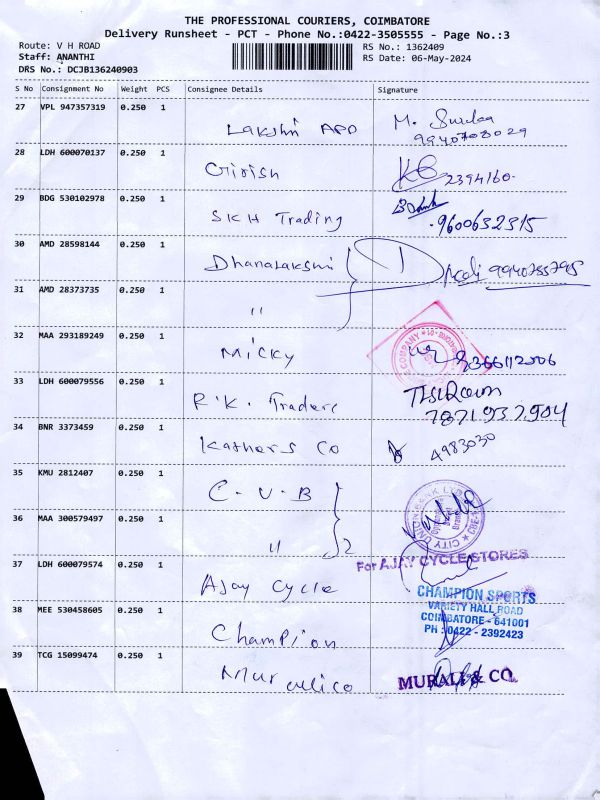 THE PROFESSIONAL COURIERS, COIMBATORE
Delivery Runsheet - PCT - Phone No.:0422-3505555 - Page No.:3
Route: V H ROAD
Staff: ANANTHI
DRS No.: DCJB136240903
RS No.: 1362409
RS Date: 06-May-2024
S No Consignment No Weight PCS Consignee Details Signature
27 VPL 947357319 0.250 1
Lakshi APD M.
9940708029
28 LDH 600070137 0.250 1
Girish 2394160.
29 BDG 530102978 0.250 1
SKH Trading .9600632315
30 AMD 28598144 0.250 1
Dhanalakshmi 9940755795
31 AMD 28373735 0.250 1
"
32 MAA 293189249 0.250 1
COMPANY
Micky
33 LDH 600079556 0.250 1
R.K. Traders
7871937904
34 BNR 3373459 0.250 1
Kathers Co 4983030
35 KMU 2812407 0.250 1
C.U.B
CITY UNION BANK LTD
36 MAA 300579497 0.250 1
" 2
37 LDH 600079574 0.250 1
For AJAY CYCLE STORES
Ajay Cycle
CHAMPION SPORTS
VARIETY HALL ROAD
COIMBATORE - 641001
PH : 0422 - 2392423
38 MEE 530458605 0.250 1
Champion
39 TCG 15099474 0.250 1
Murallico
MURALI & CO.